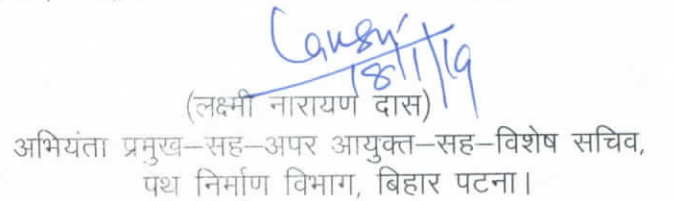 18/1/19
(लक्ष्मी नारायण दास)
अभियंता प्रमुख–सह–अपर आयुक्त–सह–विशेष सचिव,
पथ निर्माण विभाग, बिहार पटना।